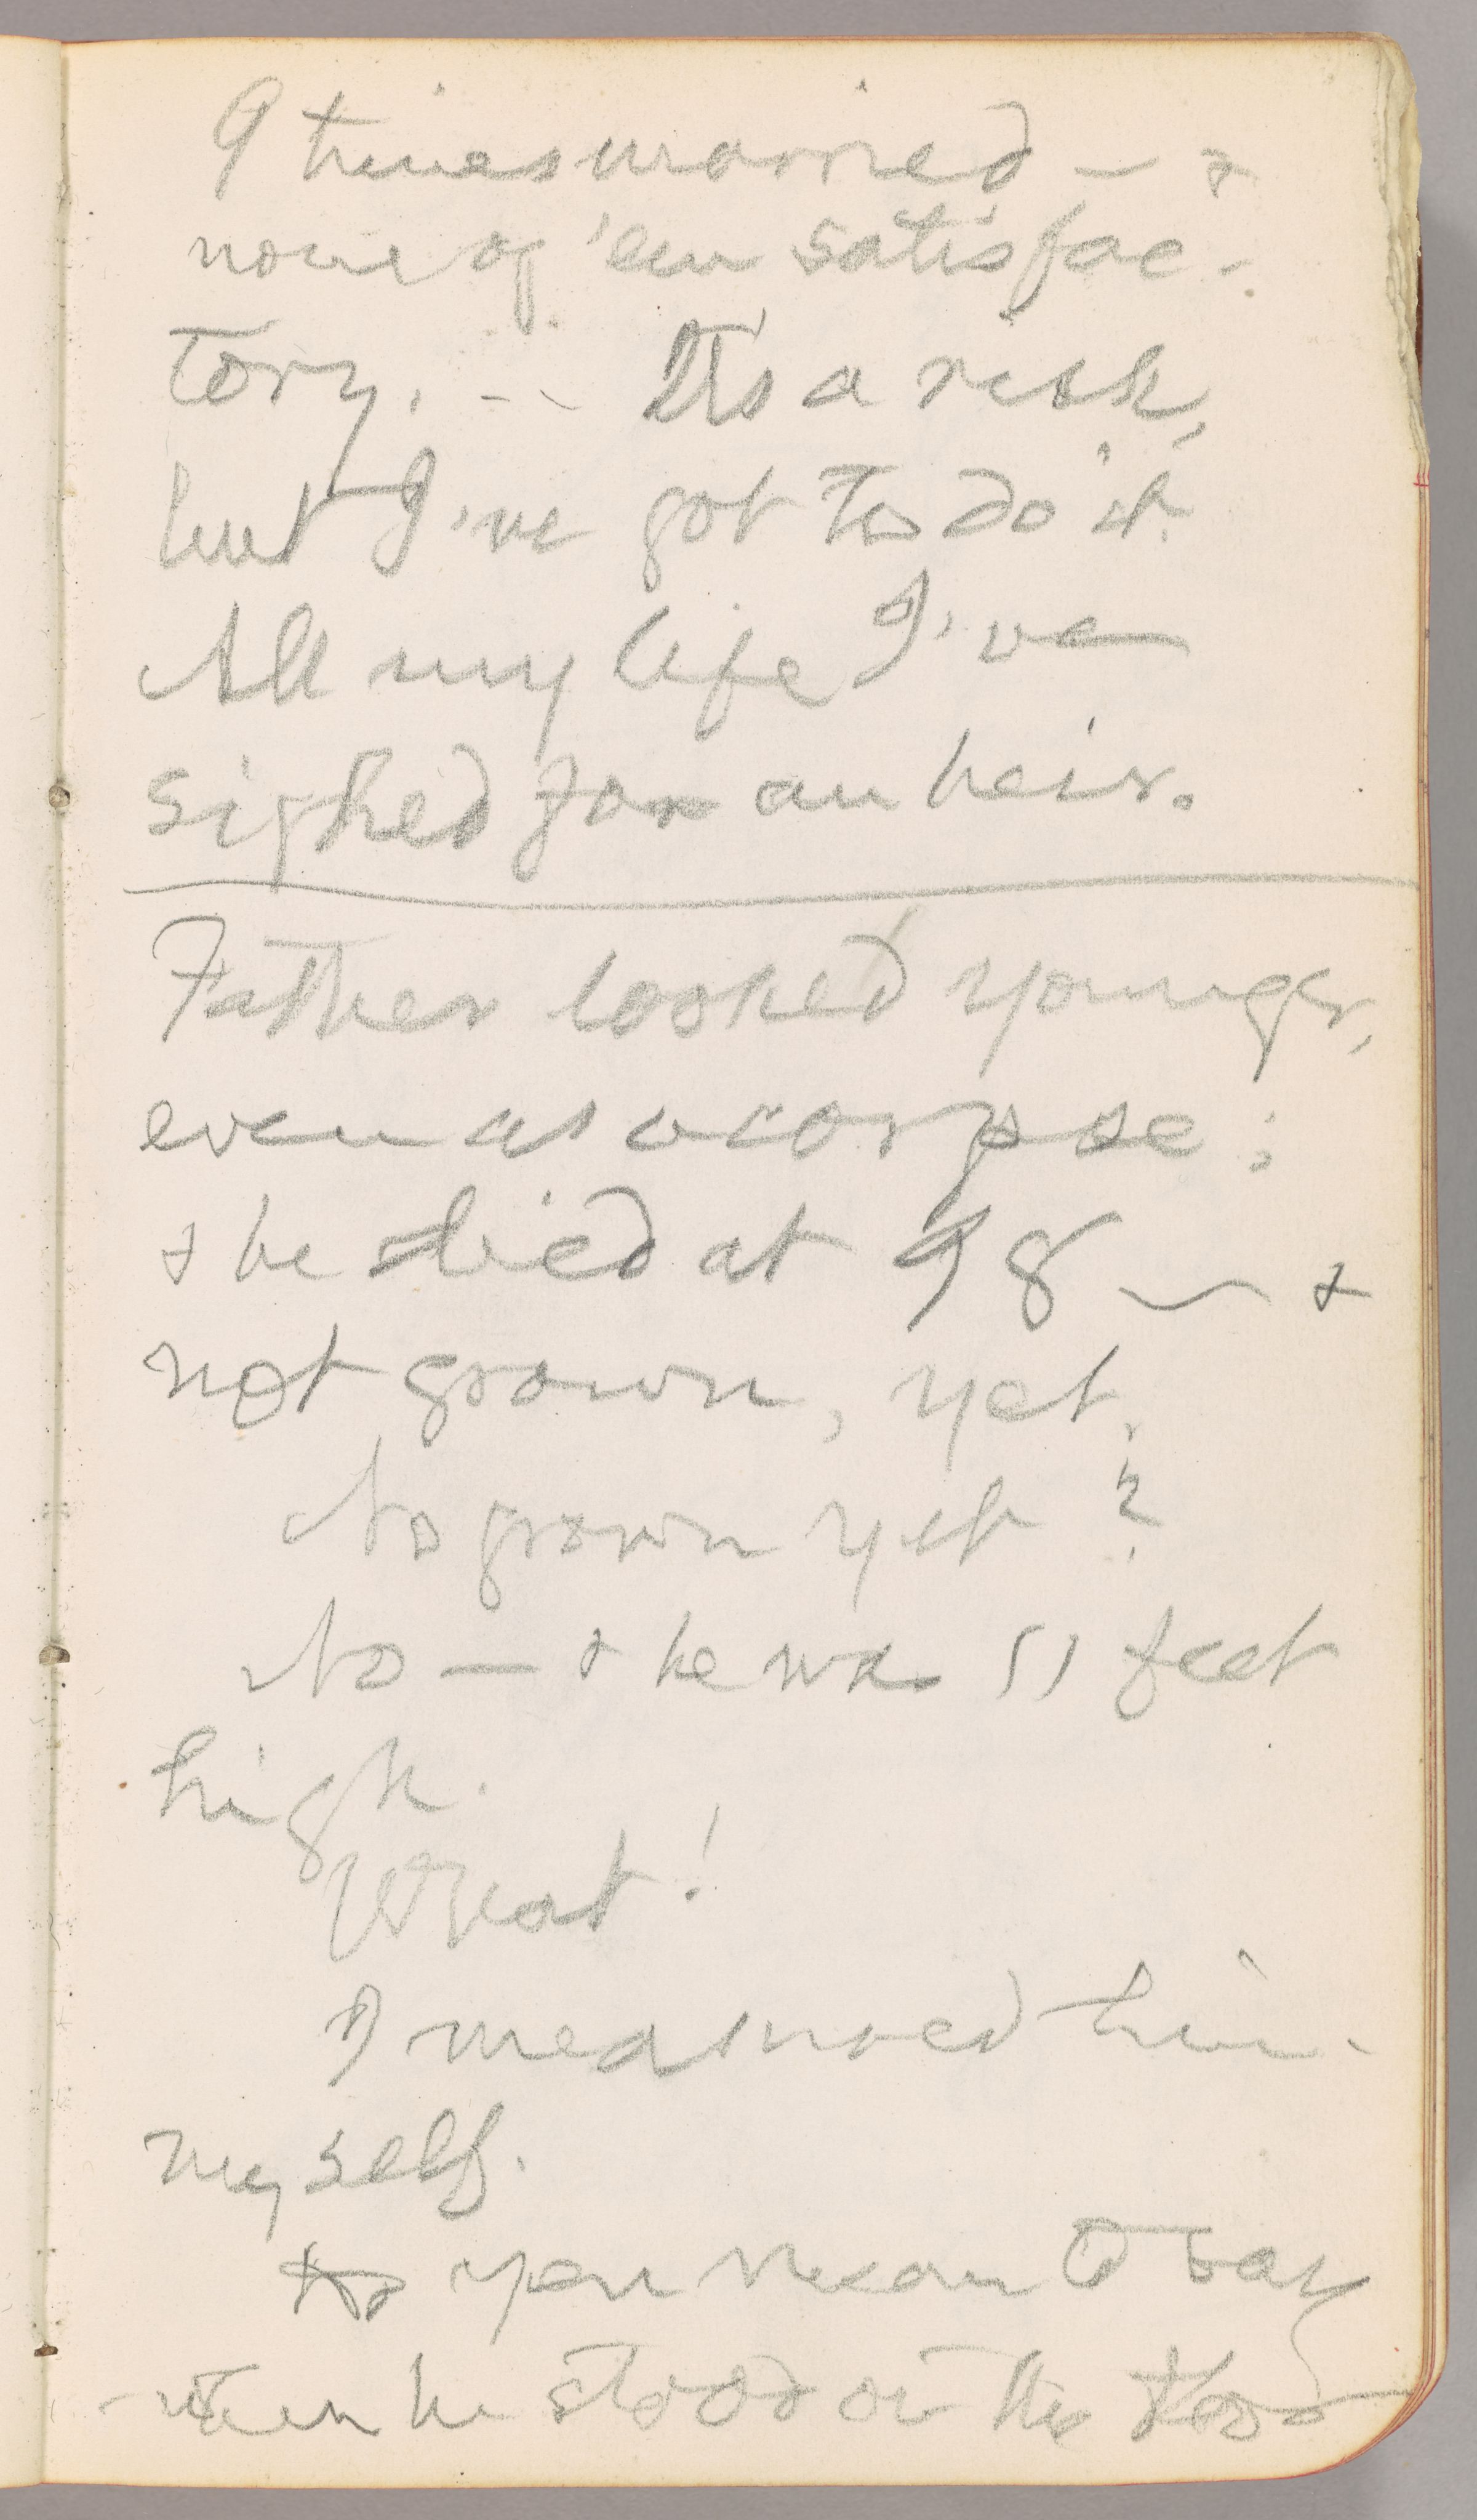 9 times married — &
none of 'em satisfac-
tory. -- It's a risk,
but I've got to do it.
All my life I've
sighed for an heir.
Father looked younger,
even as a corpse;
& he died at 98 — &
not grown, yet.
No grown yet?
No — & he was 11 feet
high.
What!
I measured him
myself.
Do you mean to say
when he stood on the